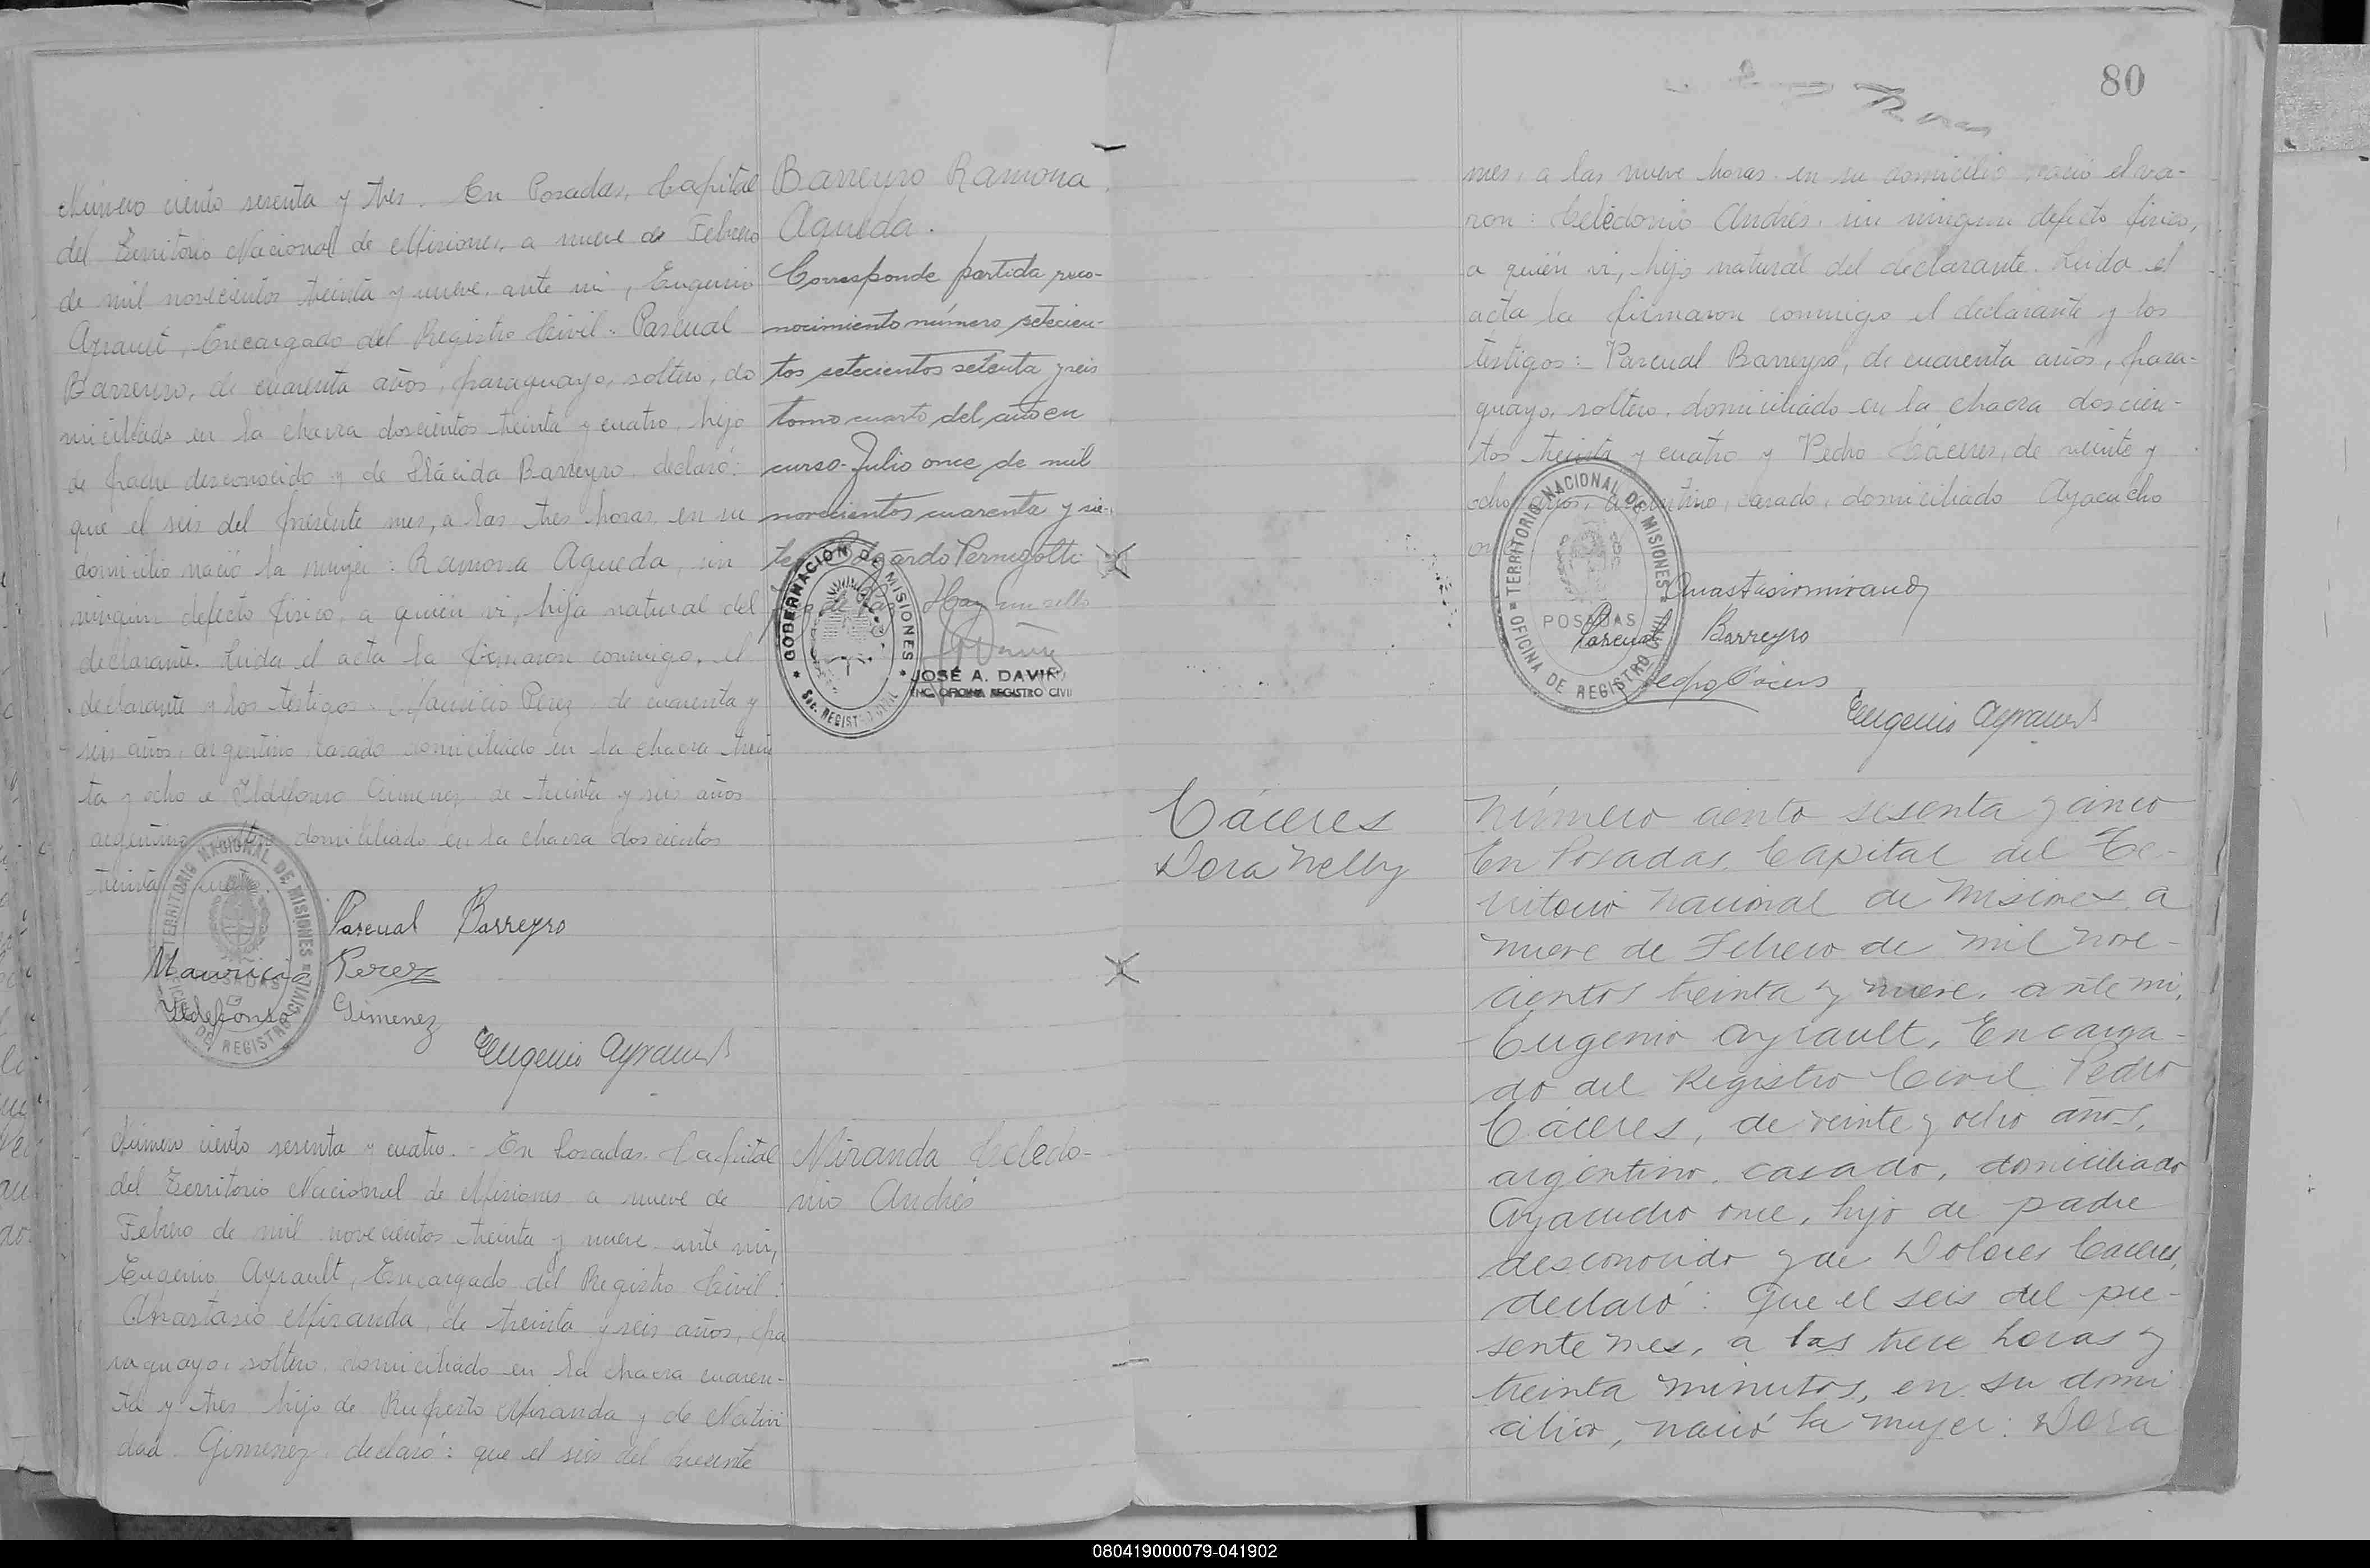 Número ciento sesenta y tres. En Posadas, Capital
del Territorio Nacional de Misiones, a nueve de Febrero
de mil novecientos treinta y nueve, ante mi, Eugenio
Ayrault, Encargado del Registro Civil: Pascual
Barreyro, de cuarenta años, paraguayo, soltero, do
miciliado en la chacra doscientos treinta y cuatro, hijo
de padre desconocido y de Plácida Barreyro, declaró:
que el seis del presente mes, a las tres horas, en su
domicilio nació la mujer: Ramona Agueda, sin
ningún defecto físico, a quién vi, hija natural del
declarante. Leida el acta la firmaron conmigo, el
declarante y los testigos: Mauricio Perez, de cuarenta y
seis años, argentino, casado domiciliado en la chacra trein
ta y ocho e Ildefonso Gimenez de treinta y seis años
argentino domiciliado en la chacra doscientos
treinta
Pascual Barreyro
Mauricio Perez
Ildefonso Gimenez
Eugenio Ayrault
TERRITORIO NACIONAL DE MISIONES
POSADAS
OFICINA DE REGISTRO CIVIL
Barreyro Ramona
Agueda.
Corresponde partida reco-
nocimiento número setecien-
tos setecientos setenta y seis
tomo cuarto del año en
curso. Julio once de mil
novecientos cuarenta y sie-
te. Eduardo Pernigotti
Juez de Paz Hay un sello
GOBERNACION DE MISIONES
Sec. REGISTRO CIVIL
JOSÉ A. DAVIÑ
ENC. OFICINA REGISTRO CIVIL
Número ciento sesenta y cuatro. - En Posadas, Capital
del Territorio Nacional de Misiones a nueve de
Febrero de mil novecientos treinta y nueve ante mi,
Eugenio Ayrault, Encargado del Registro Civil:
Anastasio Miranda, de treinta y seis años, pa
raguayo, soltero, domiciliado en la chacra cuaren-
ta y tres hijo de Ruperto Miranda y de Nativi
dad Gimenez, declaró: que el seis del presente
Miranda Celedo-
nio Andrés
80
mes, a las nueve horas en su domicilio nació el va-
ron: Celedonio Andrés, sin ningun defecto físico,
a quién vi, hijo natural del declarante. Leida el
acta la firmaron conmigo el declarante y los
testigos: Pascual Barreyro, de cuarenta años, para-
guayo, soltero, domiciliado en la chacra doscien-
tos treinta y cuatro y Pedro Cáceres, de veinte y
ocho años, argentino, casado, domiciliado Ayacucho
TERRITORIO NACIONAL DE MISIONES
POSADAS
OFICINA DE REGISTRO CIVIL
Anastasio Miranda
Pascual Barreyro
Pedro Cáceres
Eugenio Ayrault
Cáceres
Dora Nelly
Número ciento sesenta y cinco
En Posadas, Capital del Te-
rritorio Nacional de Misiones, a
nueve de Febrero de mil nove-
cientos treinta y nueve, ante mi,
Eugenio Ayrault, Encarga-
do del Registro Civil Pedro
Cáceres, de veinte y ocho años,
argentino, casado, domiciliado
Ayacucho once, hijo de padre
desconocido y de Dolores Caceres,
declaró: Que el seis del pre-
sente mes, a las trece horas y
treinta minutos, en su domi
cilio, nació la mujer: Dora
080419000079-041902